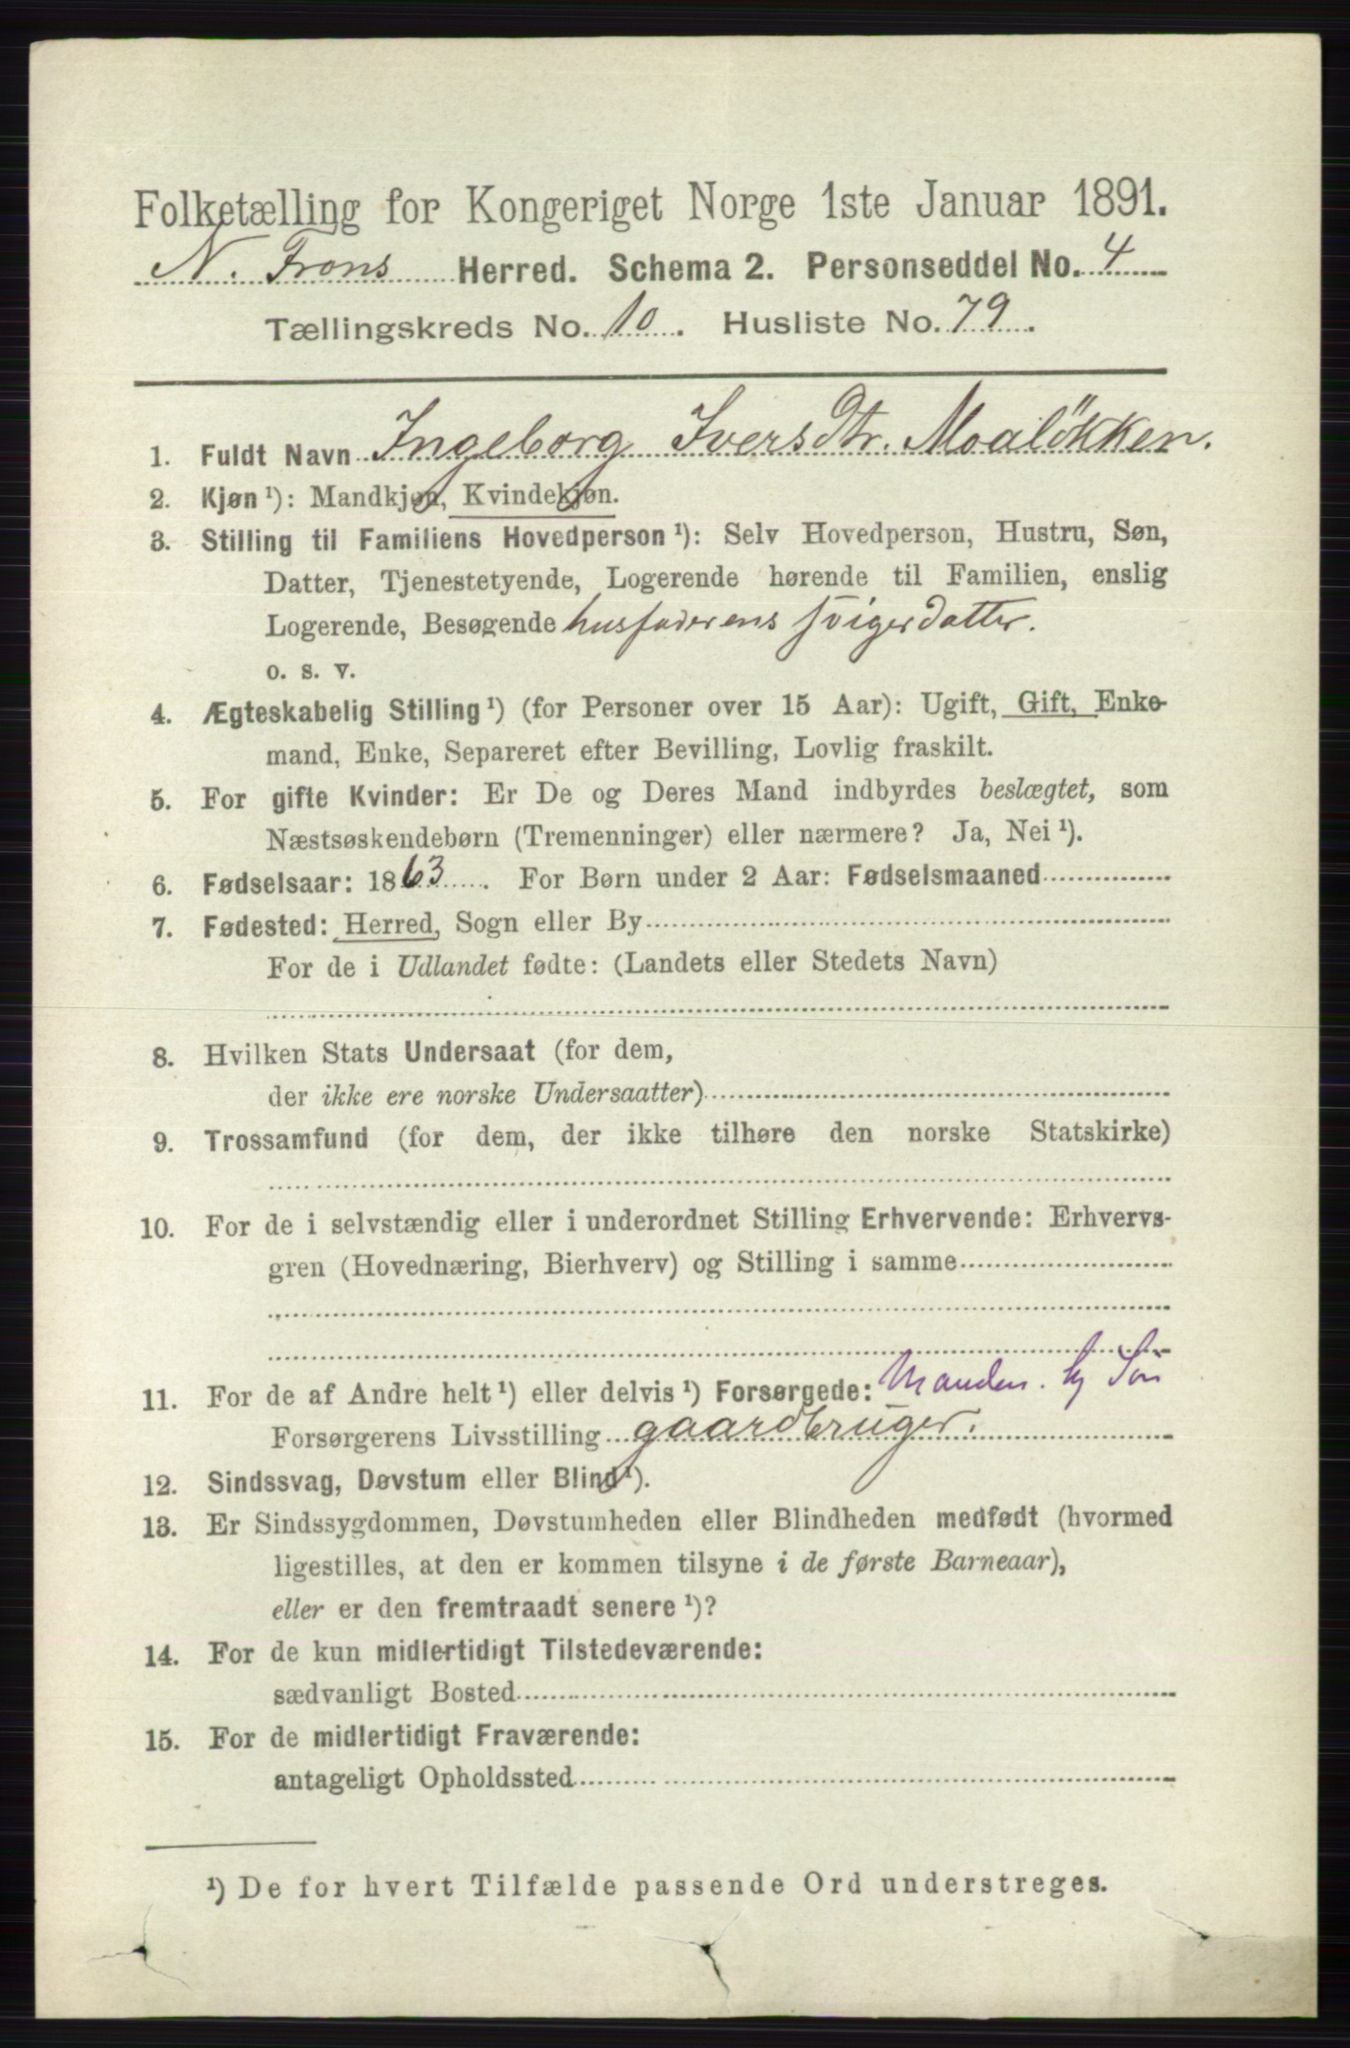 Folketælling for Kongeriget Norge 1ste Januar 1891.
N. Frons Herred. Schema 2. Personseddel No. 4
Tællingskreds No. 10. Husliste No. 79.
1. Fuldt Navn Ingeborg Iversdtr. Moaløkken.
2. Kjøn ¹): Mandkjøn, Kvindekjøn.
3. Stilling til Familiens Hovedperson ¹): Selv Hovedperson, Hustru, Søn,
Datter, Tjenestetyende, Logerende hørende til Familien, enslig
Logerende, Besøgende husfaderens svigerdatter.
o. s. v.
4. Ægteskabelig Stilling ¹) (for Personer over 15 Aar): Ugift, Gift, Enke-
mand, Enke, Separeret efter Bevilling, Lovlig fraskilt.
5. For gifte Kvinder: Er De og Deres Mand indbyrdes beslægtet, som
Næstsøskendebørn (Tremenninger) eller nærmere? Ja, Nei ¹).
6. Fødselsaar: 1863. For Børn under 2 Aar: Fødselsmaaned
7. Fødested: Herred, Sogn eller By
For de i Udlandet fødte: (Landets eller Stedets Navn)
8. Hvilken Stats Undersaat (for dem,
der ikke ere norske Undersaatter)
9. Trossamfund (for dem, der ikke tilhøre den norske Statskirke)
10. For de i selvstændig eller i underordnet Stilling Erhvervende: Erhvervs-
gren (Hovednæring, Bierhverv) og Stilling i samme
11. For de af Andre helt ¹) eller delvis ¹) Forsørgede: Manden. Søn
Forsørgerens Livsstilling gaardbruger.
12. Sindssvag, Døvstum eller Blind ¹).
13. Er Sindssygdommen, Døvstumheden eller Blindheden medfødt (hvormed
ligestilles, at den er kommen tilsyne i de første Barneaar),
eller er den fremtraadt senere ¹)?
14. For de kun midlertidigt Tilstedeværende:
sædvanligt Bosted
15. For de midlertidigt Fraværende:
antageligt Opholdssted
¹) De for hvert Tilfælde passende Ord understreges.